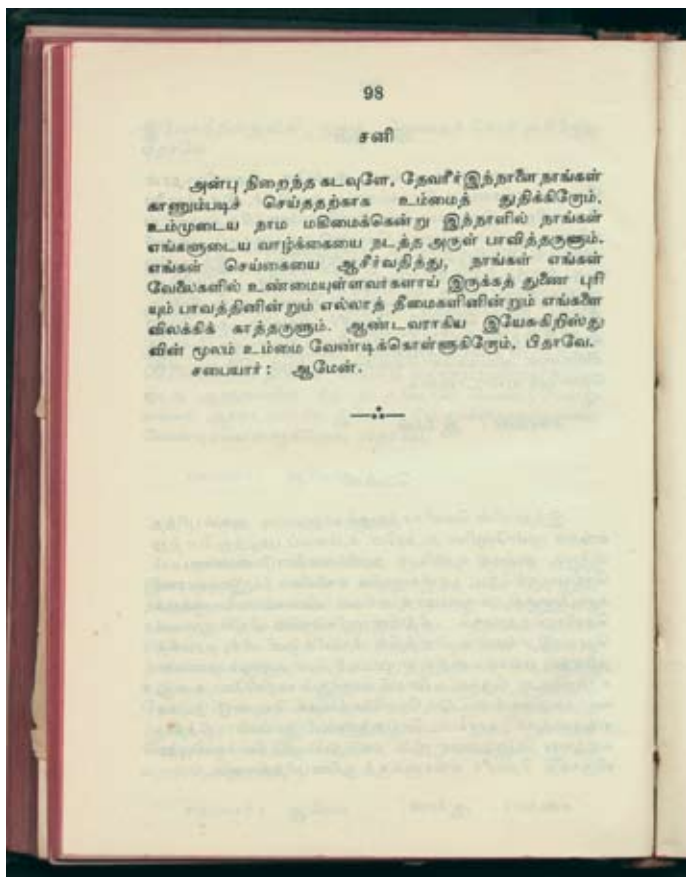 98
சனி
அன்பு நிறைந்த கடவுளே, தேவரீர் இந்நாளை நாங்கள்
காணும்படிச் செய்ததற்காக உம்மைத் துதிக்கிறோம்.
உம்முடைய நாம மகிமைக்கென்று இந்நாளில் நாங்கள்
எங்களுடைய வாழ்க்கையை நடத்த அருள் பாவித்தருளும்.
எங்கள் செய்கையை ஆசீர்வதித்து, நாங்கள் எங்கள்
வேலைகளில் உண்மையுள்ளவர்களாய் இருக்கத் துணை புரி
யும் பாவத்தினின்றும் எல்லாத் தீமைகளினின்றும் எங்களை
விலக்கிக் காத்தருளும். ஆண்டவராகிய இயேசுகிறிஸ்து
வின் மூலம் உம்மை வேண்டிக்கொள்ளுகிறோம், பிதாவே.
சபையார் : ஆமேன்.